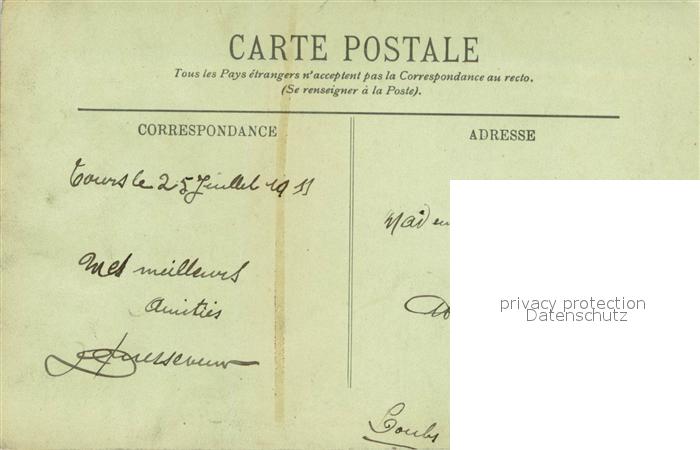 CARTE POSTALE
Tous les Pays étrangers n'acceptent pas la Correspondance au recto.
(Se renseigner à la Poste).
CORRESPONDANCE
ADRESSE
Tours le 25 Juillet 1911
Mes meilleurs
amitiés
privacy protection
Datenschutz